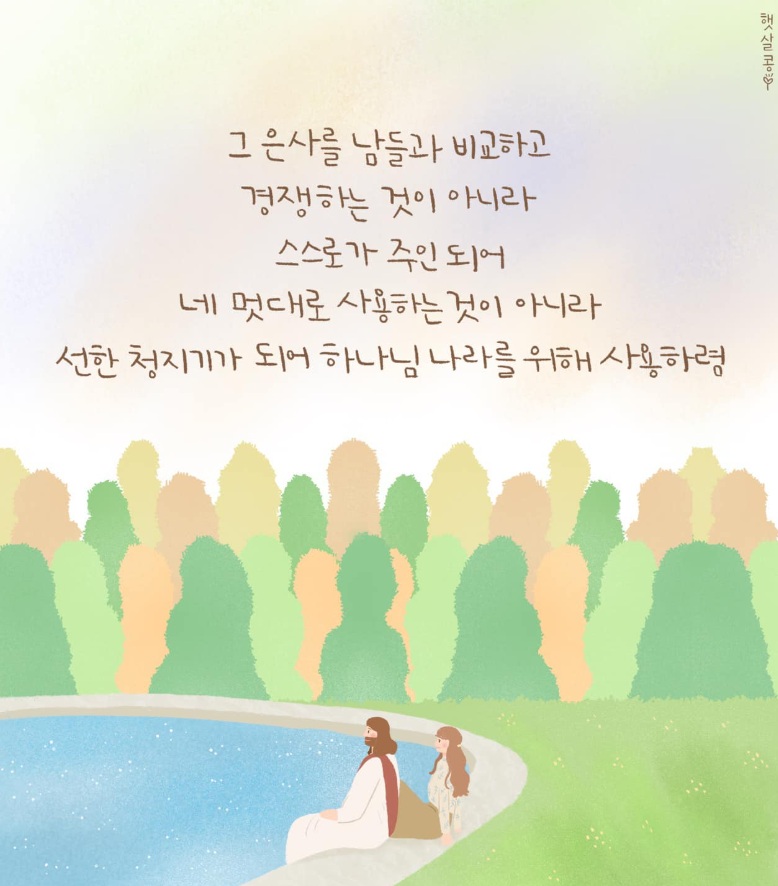 햇살콩
그 은사를 남들과 비교하고
경쟁하는 것이 아니라
스스로가 주인 되어
네 멋대로 사용하는것이 아니라
선한 청지기가 되어 하나님 나라를 위해 사용하렴